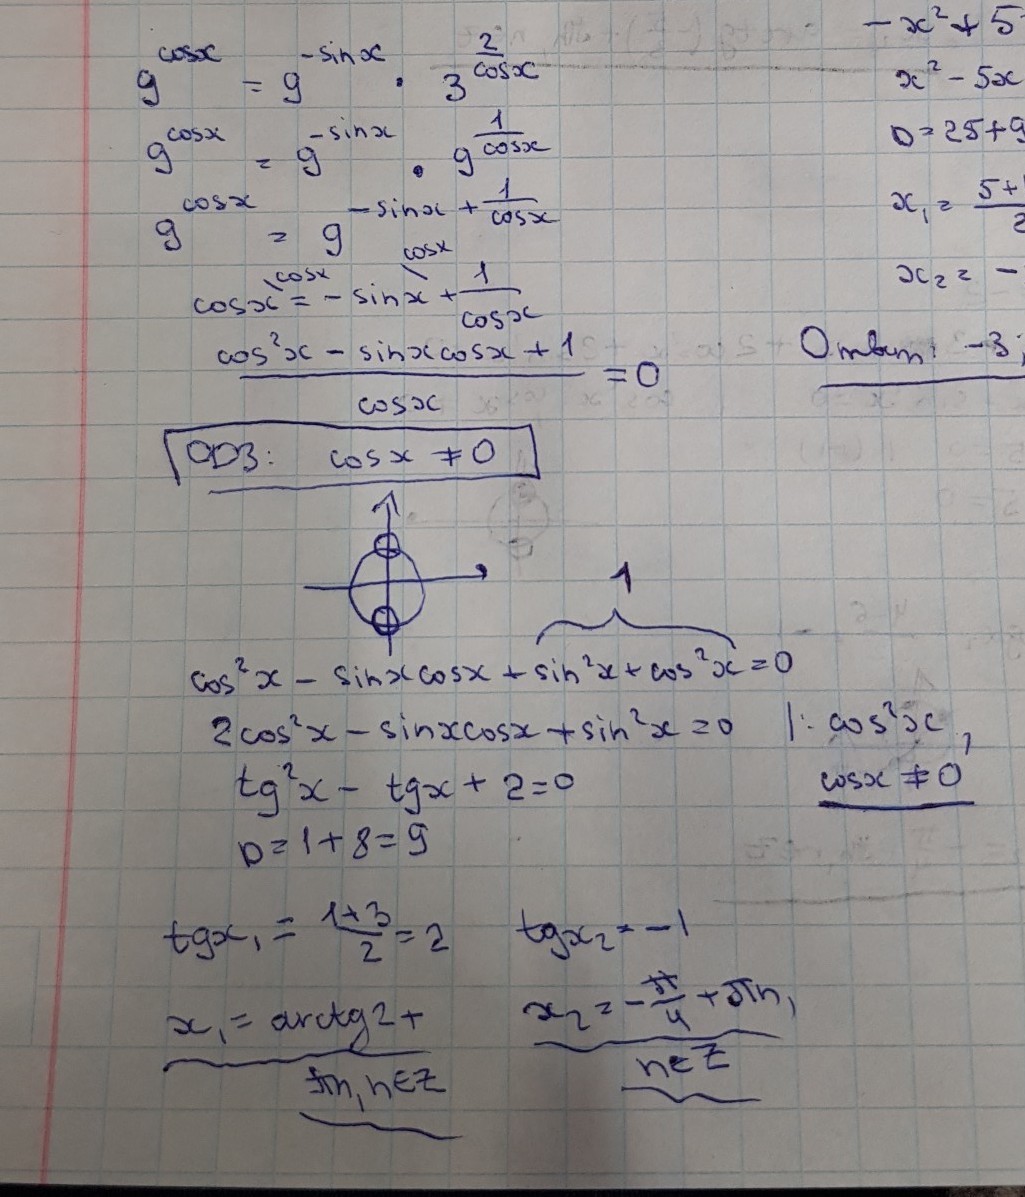 9^cosx = 9^-sinx · 3^(2/cosx)
9^cosx = 9^-sinx · 9^(1/cosx)
9^cosx = 9^(-sinx + 1/cosx)
cosx cosx
cosx = -sinx + 1/cosx
(cos²x - sinxcosx + 1)/cosx = 0
ОДЗ: cosx ≠ 0
1
cos²x - sinxcosx + sin²x + cos²x = 0
2cos²x - sinxcosx + sin²x = 0 |: cos²x,
cosx ≠ 0
tg²x - tgx + 2 = 0
D = 1 + 8 = 9
tgx₁ = (1+3)/2 = 2
tgx₂ = -1
x₁ = arctg2 +
πn, n∈Z
x₂ = -π/4 + πn,
n∈Z
-x² + 5
x² - 5x
D = 25 + 9
x₁ = 5+
2
x₂ = -
Ответ: -3;